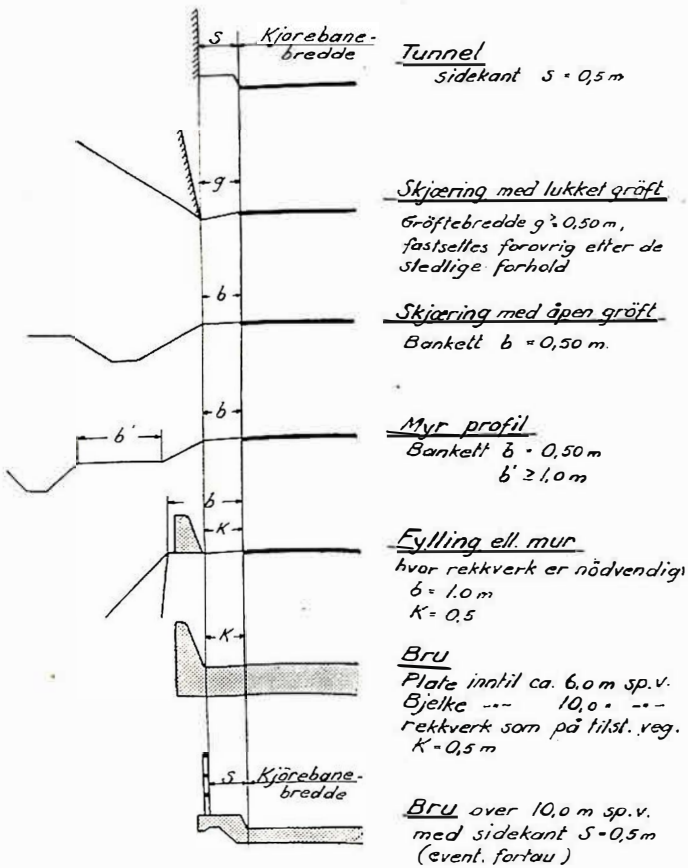 S
Kjørebane-
bredde
Tunnel
sidekant S = 0,5 m
g
Skjæring med lukket gröft
Gröftebredde g ≥ 0,50 m,
fastsettes forøvrig etter de
stedlige forhold
b
Skjæring med åpen gröft
Bankett b = 0,50 m.
b
b'
Myr profil
Bankett b = 0,50 m
b' ≥ 1,0 m
b
K
Fylling ell. mur
hvor rekkverk er nödvendig
b = 1,0 m
K = 0,5
K
Bru
Plate inntil ca. 6,0 m sp.v.
Bjelke -"- 10,0 " -"-
rekkverk som på tilst. veg.
K = 0,5 m
S
Kjörebane-
bredde
Bru over 10,0 m sp.v.
med sidekant S = 0,5 m
(event. fortau)